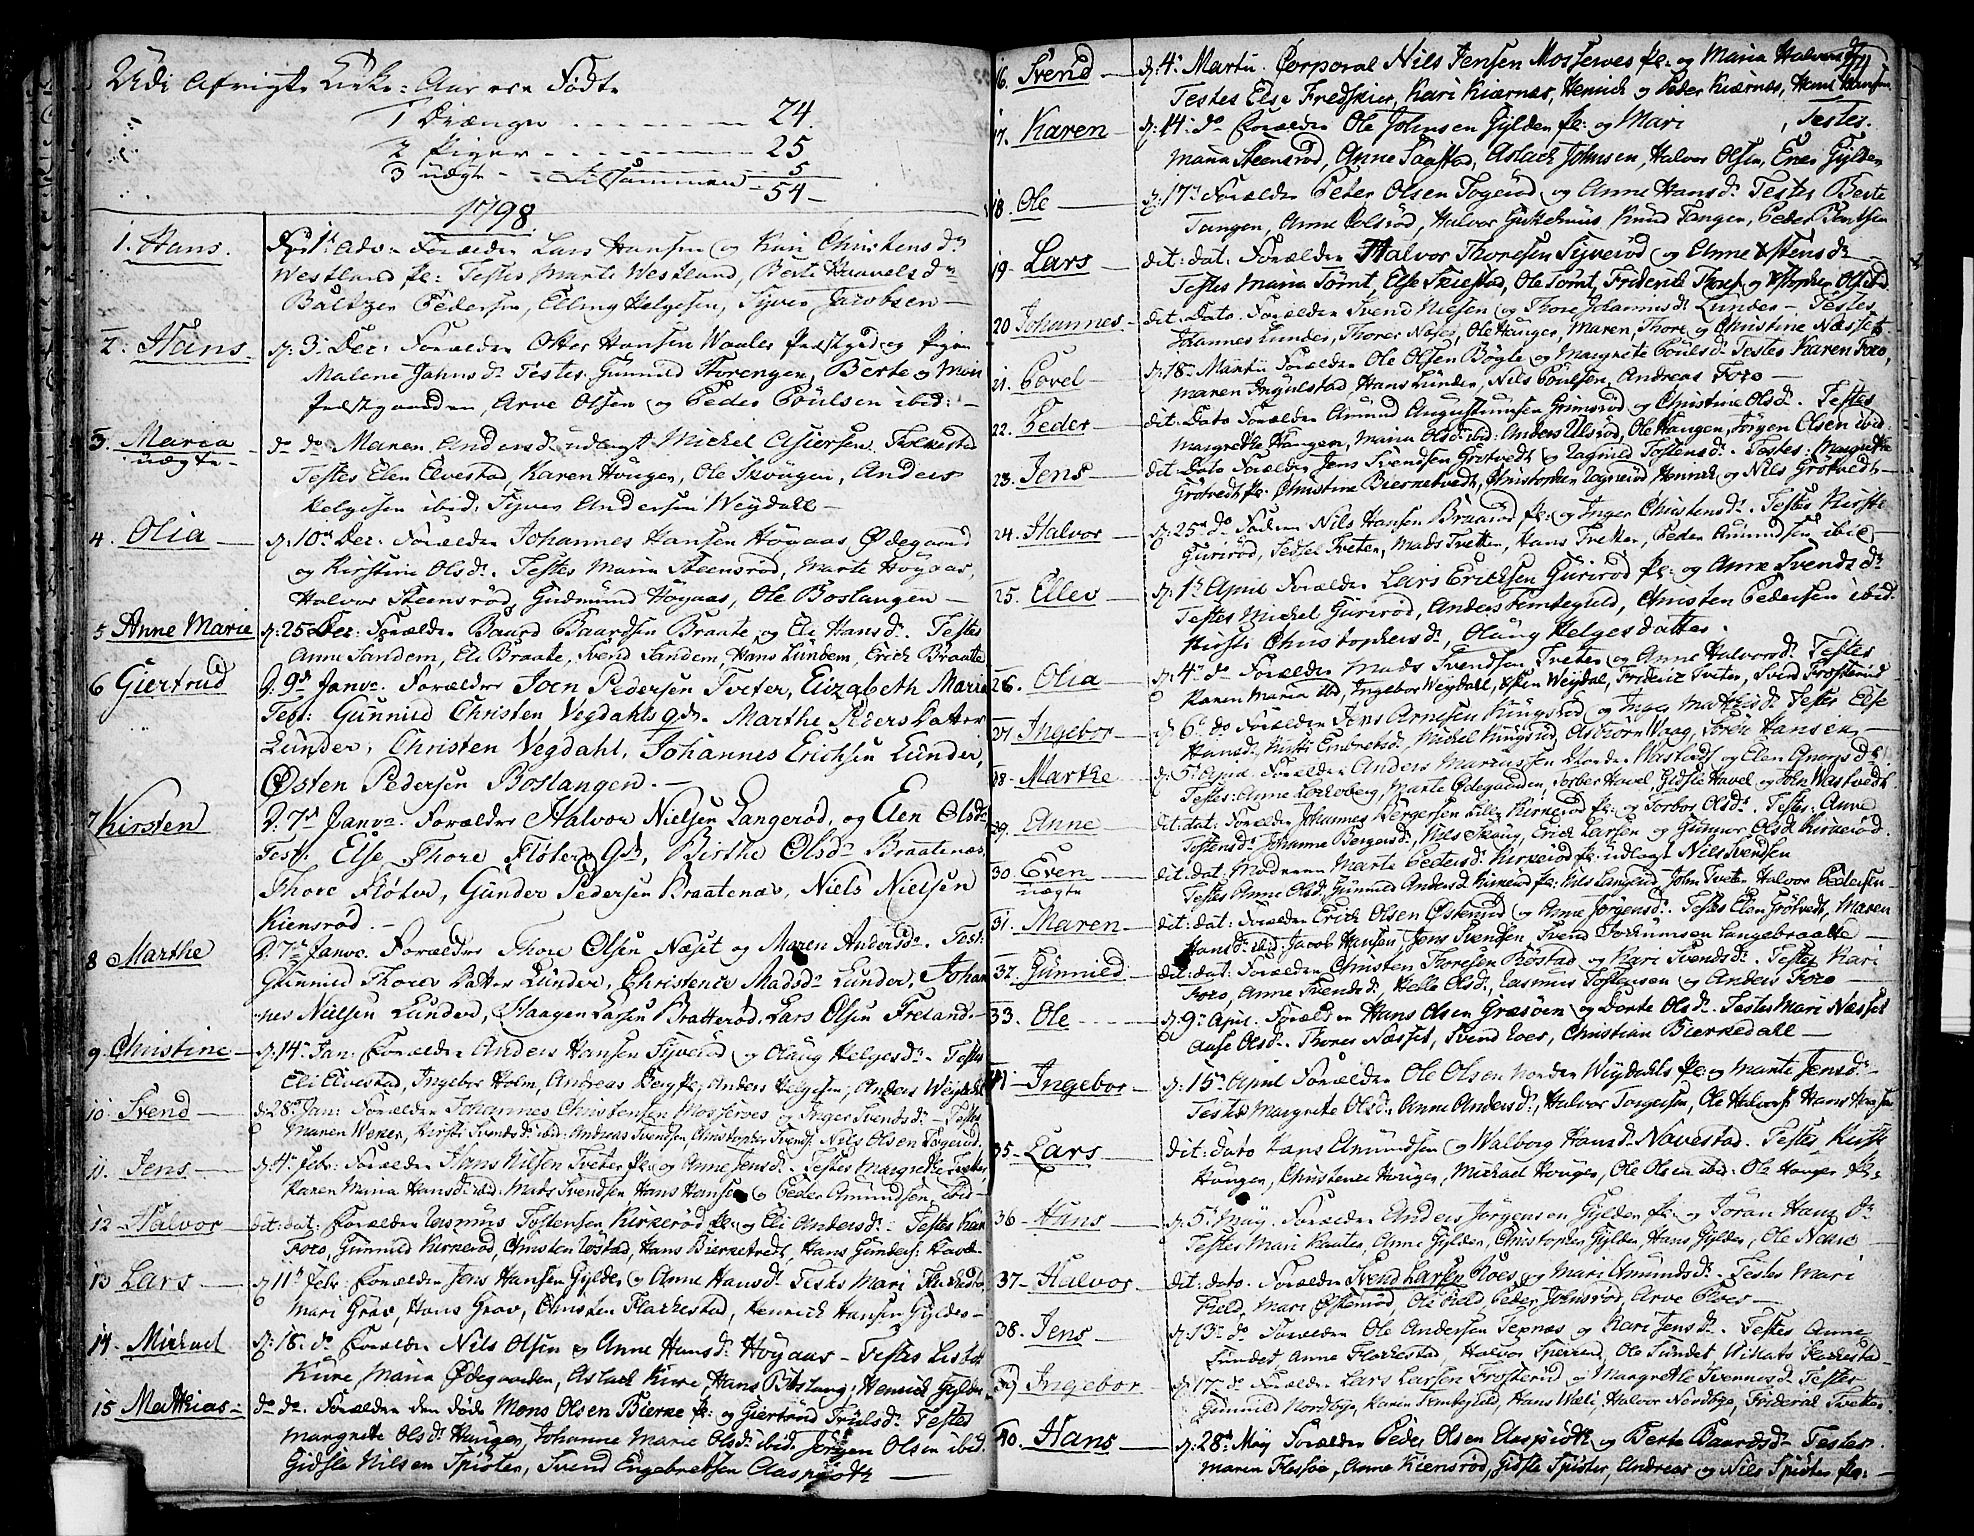 Udi afvigte Kirke: Aar ere Födte
1 Drænger - - - - - 24
2 Piger - - - - - 25
3 uægte - - - tilsammen - 5
54 -
1798.
1. Hans. Dp: 1te Adv. Forældre Lars Hansen og Kari Christensdr
Westland pl: Testes Marte Westland, Berte Haavelsdr
Baltzer Pedersen, Elling Helgesen, Syver Jacobsen -
2. Hans d: 3 Dec: Forældre Otter Hansen Waaler Præstgd: og Pigen
Malene Jahnsdr Testes Gunnild Thorengen, Berte og Mari
Præstgaarden, Arve Olsen og Peder Poulsen ibid: -
3. Maria do do Maren Andersdr udlagt Michel Flakkestad
uægte - Testes Elen Elvestad, Karen Hougen, Ole Skougen, Anders
Helgesen ibid: Syver Andersen Weydall -
4. Olia d: 10 Dec: Forældre Johannes Hansen Høgaas Ødegaard
og Kirstine Olsdr. Testes Maria Steensrød, Marte Høgaas,
Halvor Steensrød, Gudmund Høgaas, Ole Boslangen -
5 Anne Marie d: 25 Dec: Forældre Baard Baardsen Braate og Eli Hansdr. Testes
Anne Sandem, Eli Braate, Svend Sandem, Hans Lundem, Erich Braate
6 Giertrud D. 9de Janv. Forældre Joen Pedersen Tveter, Elizabeth Marie
Test: Gunnild Christen Vegdahls Marthe Datter
Lunder, Christen Vegdahl, Johannes Erichsen Lunder,
Østen Pedersen Boslangen. -
7 Kirsten D. 7de Janv. Forældre Halvor Nielsen Langerød, og Elen Olsdr
Test. Else Thore Fløter, Birthe Olsdr Braatenæs,
Thore Fløter, Gunder Pedersen Braatenæs, Niels Nielsen
Kiensrød. -
8 Marthe D. 7de Janv. Forældre Thore Olsen Næset og Maren Andersdr. Test:
Gunnild Thores Datter Lunder, Christence Madsdr Lunder, Johan
nes Nielsen Lunder, Haagen Larsen Bratterød, Lars Olsen Freland. -
9. Christine d: 14 Jan: Forældre Anders Hansen Syverød og Olaug Helgesdr. Testes
Eli Elvestad, Ingebor Holm, Andreas Berg, Anders Helgesen, Anders Weydahl
10. Svend d: 28 Jan: Forældre Johannes Christensen Mosserøes og Inger Svendsdr. Testes
Maren Weker, Kirsti Svendsdr ibid: Andreas Svendsen, Christopher Svends: Nils Olsen Togerud.
11. Jens. d: 4 Febr: Forældre Hans Nilsen Tveter pl: og Anne Jensdr. Testes Margrethe Tveter,
Karen Maria Hansdr ibid: Mads Svendsen Hans Hansen og Peder Amundsen, ibid -
12 Halvor dit: dat: Forældre Rasmus Tostensen Kirkerød pl: og Eli Andersdr. Testes Kari
Foro, Gunnild Kirkerød, Christen Røstad, Hans Bierketvedt, Hans Gunders:
13 Lars d: 11 Febr: Forældre Jens Hansen Gylder og Anne Hansdr Testes Mari
Mari Grav, Hans Grav, Christen Flakkestad, Henrich Hansen Gylder -
14 Michael d: 18. do Forældre Nils Olsen og Anne Hansdr Høgaas - Testes Lisbet
Kure, Maria Ødegaarden, Aslach Kure, Hans Boslang, Henrich Gylder
15 Mathias do do: Forældre den døde Mons Olsen Bierke pl: og Giertrud Trulsdr Testes
Margrete Olsdr Haugen, Johanne Marie Olsdr ibid. Jørgen Olsen ibid
Gidsle Nilsen Spiøter, Svend Engebretsen
16. Svend d: 4 Martii. Corporal Nils Jensen Mosserøes pl: og Maria Halvorsdr
Testes Else Fredskier, Kari Kiærnæs, Henrich og Peder Kiærnæs, Hans Hansen
17. Karen d: 14 do Forældre Ole Johnsen Gylder pl: og Mari Testes
Maria Steensrød, Anne Saastad, Aslach Johnsen, Halvor Olsen, Ener Gylder
18. Ole d: 17 Forældre Peder Olsen Togerød og Anne Hansdr Testes Berte
Tangen, Anne Halvor Guttelmus, Knud Tangen, Peder Bentsen
19. Lars dit: dat: Forældre Halvor Thoresen Syverød og Anne Xstensdr
Testes Maria Tømt, Else Skiestad, Ole Tømt, Friderich Thoes: og Xstopher Olstad
20 Johannes dit. Dato. Forældre Svend Nielsen og Thore Johannisdr Lunder - Testes
Johannes Lunder, Thorer Næset, Ole Hauger, Maren, Thore og Christine Næsset
21. Povel d: 18 Martii Forældre Ole Olsen Bøgle og Margrete Poulsdr Testes Karen Foro,
Maren Ingulstad Hans Lunder, Nils Poulsen, Andreas Foro -
22. Peder dit. Dato Forældre Amund Augustinusen Grimsrød og Christine Olsdr. Testes
Margrethe Haugen, Maria Olsdr ibid: Anders Ulsrød, Ole Haugen, Jørgen Olsen ibid:
23. Jens dit: Dato Forældre Jens Svendsen Grøtvedt og Ragnild Tostensdr. Testes: Margrethe
Grøtvedt pl: Christine Bierketvedt, Christopher Henrich og Nils Grøtvedt -
24. Halvor d: 25 do Forældre Nils Hansen Braarød pl: og Inger Christensdr. Testes Kirsti
Gurirød, Sidsel Tveten, Mads Tvetten, Hans Tvetten, Peder Amundsen ibid -
25. Ellev d: 1 April Forældre Lars Erichsen Gurirød pl: og Anne Svendsdr
Testes Michel Gurirød, Anders Femtegield, Christen Pedersen ibid.
Kirsti Christophersdr, Olaug Helgesdatter.
26. Olia d: 4 do Forældre Mads Svendsen Tveter og Anne Halvorsdr Testes
Karen Maria ibid, Ingebor Weydall, Xsten Weydal, Friderich Tveter, Svend Frosterud
27 Ingebor d. 6 do Forældre Jens Arnesen Kingsrød og Inger Mathisdr Testes Else
Hansdr, Kirsti Embretsdr, Michel Kingsrud, Asbiørn Waag, Søren Hansen -
28. Marthe d. 5 April Forældre Anders Mariussen Wastvedt og Elen Gregersdr
Testes: Anne Marte Ødegaarden, Torber Havel, Gidsle Havel og John Wastvedt
29. Anne dit: dat: Forældre Johannes Bergersen Lille Kirkerød pl: og Torbor Olsdr. Testes: Anne
Tostensdr Johanne Bergersdr, Nils Skaug, Erich Larsen og Gunnor Olsdr Kirkerød.
30. Even dit: dat: Moderen Marte Pedersdr Kirkerød pl: udlagt Nils Svendsen
uægte Testes Anne Olsdr, Gunnild Andersdr Kirkerød pl: Nils Langerød, John Tveten, Halvor Pedersen
31. Maren dit: dat: Forældre Erich Olsen Østerrød og Anne Jørgensdr. Testes Elen Grøtvedt, Maren
Hansdr ibid: Jacob Hansen, Jens Svendsen, Svend Jochumsen Langebraatte -
32. Gunnild dit: dat: Forældre Christen Thoresen Røstad og Kari Svendsdr. Testes Kari
Foro, Anne Svendsdr, Helle Olsdr, Rasmus Tostensen og Anders Foro -
33. Ole d: 9 April. Forældre Hans Olsen Græsøen og Dorte Olsdr. Testes Mari Næsset
Aase Olsdr. Thores Næsset, Svend Roes, Christian Bierkedall -
Ingebor d: 15 April Forældre Ole Olsen Norden Weydahls pl: og Marte Jensdr.
Testes Margrete Olsdr. Anne Andersdr, Halvor Torgersen, Ole Halvors: Hans Hansen
35. Lars dit: Dato Lars Amundsen og Walborg Hansdr Navestad. Testes Kirsti
Hougen, Christence Hougen, Michael Houger, Ole Olsen ibid: Ole Houger pl:
36 - Hans d: 5 May. Forældre Anders Jørgensen Gylder pl: og Joran Hansdr
Testes Mari Raater, Anne Gylder, Christopher Gylder, Hans Gylder, Ole Næs -
37 - Halvor dit: Dato. Forældre Svend Larsen Roes og Mari Amundsdr. Testes Mari
Field, Mari Østerrød, Ole Field, Peder Johnsrød, Arve Elves -
38. Jens d: 13 do Forældre Ole Andersen Sepnæs og Kari Jensdr. Testes Anne
Sundet, Anne Flakkestad Halvor Sperren, Ole Sundet Wilhats Flakkestad
39 Ingebor d: 17 do Forældre Lars Larsen Frosterud og Margrethe Svennesdr Testes
Gunnild Nordbye, Karen Femtegield, Hans Wæli, Halvor Nordbye, Friderich Tveter
40. Hans d: 28 May Forældre Peder Olsen og Berte Baardsdr. Testes
Maren Flesøe, Anne Kiensrød, Gidsle Spiøter, Andreas og Nils Spiøter pl: -